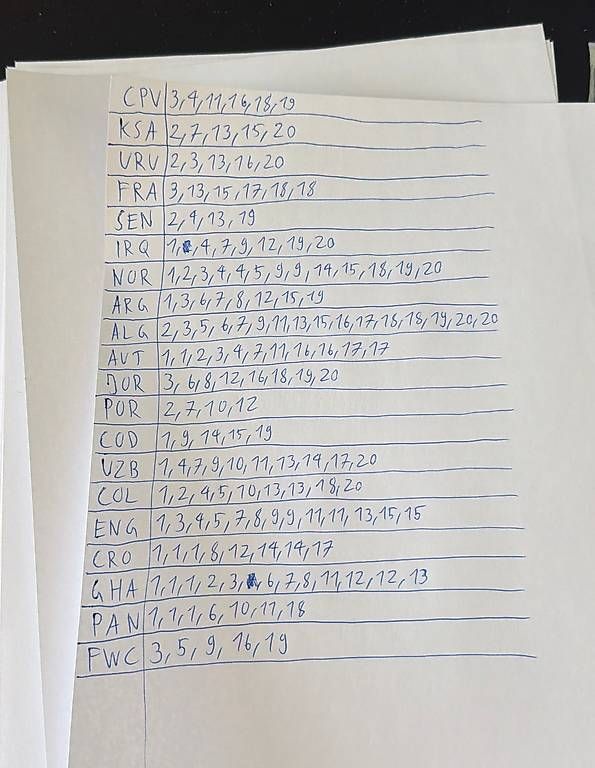 CPV 3,4,11,16,18,19
KSA 2,7,13,15,20
URU 2,3,13,16,20
FRA 3,13,15,17,18,18
SEN 2,4,13,19
IRQ 1,4,7,9,12,19,20
NOR 1,2,3,4,4,5,9,9,14,15,18,19,20
ARG 1,3,6,7,8,12,15,19
ALG 2,3,5,6,7,9,11,13,15,16,17,18,18,19,20,20
AUT 1,1,2,3,4,7,11,16,16,17,17
JOR 3,6,8,12,16,18,19,20
POR 2,7,10,12
COD 1,9,14,15,19
UZB 1,4,7,9,10,11,13,14,17,20
COL 1,2,4,5,10,13,13,18,20
ENG 1,3,4,5,7,8,9,9,11,11,13,15,15
CRO 1,1,1,8,12,14,14,17
GHA 1,1,1,2,3,6,7,8,11,12,12,13
PAN 1,1,1,6,10,11,18
FWC 3,5,9,16,19